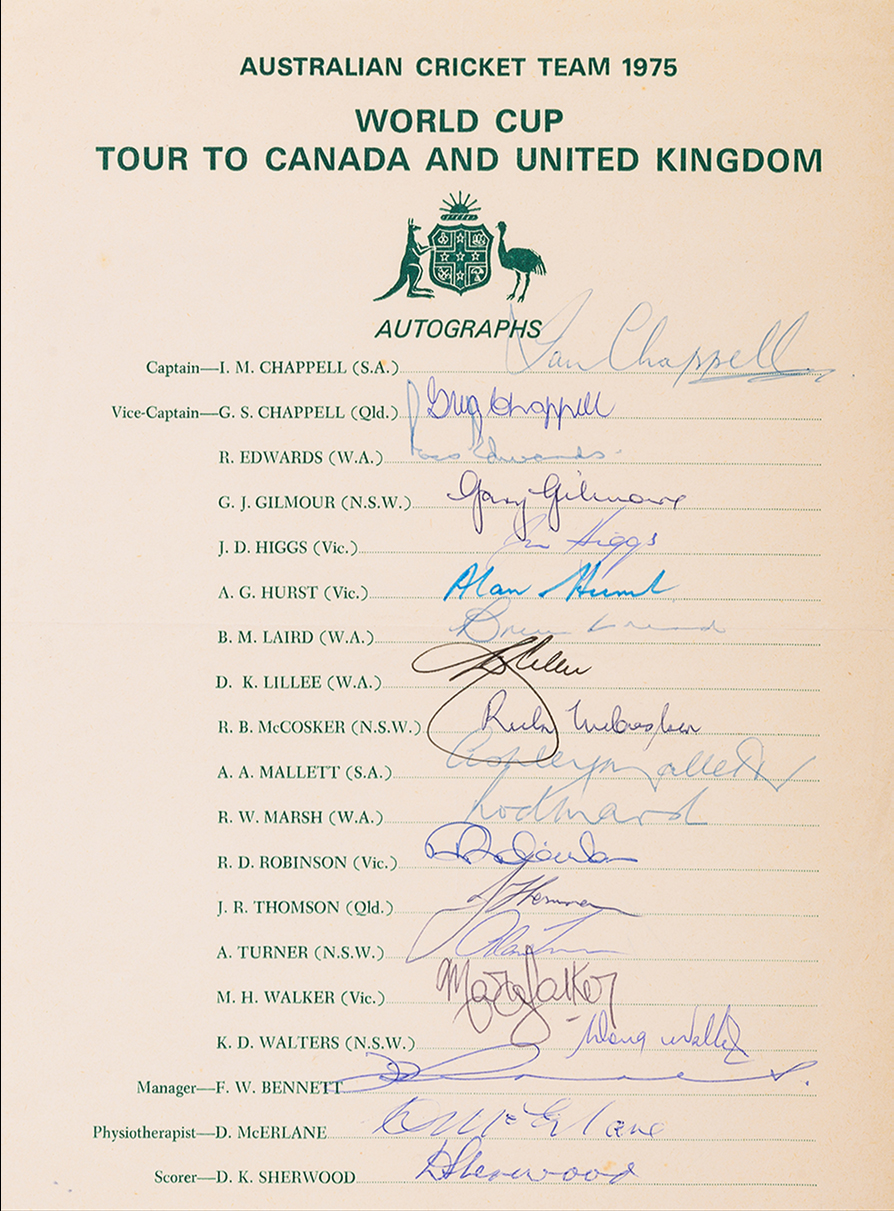 AUSTRALIAN CRICKET TEAM 1975
WORLD CUP
TOUR TO CANADA AND UNITED KINGDOM
AUTOGRAPHS
Captain—I. M. CHAPPELL (S.A.) Ian Chappell
Vice-Captain—G. S. CHAPPELL (Qld.) Greg Chappell
R. EDWARDS (W.A.) Ross Edwards
G. J. GILMOUR (N.S.W.) Gary Gilmour
J. D. HIGGS (Vic.) Jim Higgs
A. G. HURST (Vic.) Alan Hurst
B. M. LAIRD (W.A.) Bruce Laird
D. K. LILLEE (W.A.) DK Lillee
R. B. McCOSKER (N.S.W.) Rick McCosker
A. A. MALLETT (S.A.) Ashley Mallett
R. W. MARSH (W.A.) Rod Marsh
R. D. ROBINSON (Vic.)
J. R. THOMSON (Qld.) J Thomson
A. TURNER (N.S.W.) Alan Turner
M. H. WALKER (Vic.) Max Walker
K. D. WALTERS (N.S.W.) Doug Walters
Manager—F. W. BENNETT
Physiotherapist—D. McERLANE D McErlane
Scorer—D. K. SHERWOOD D Sherwood